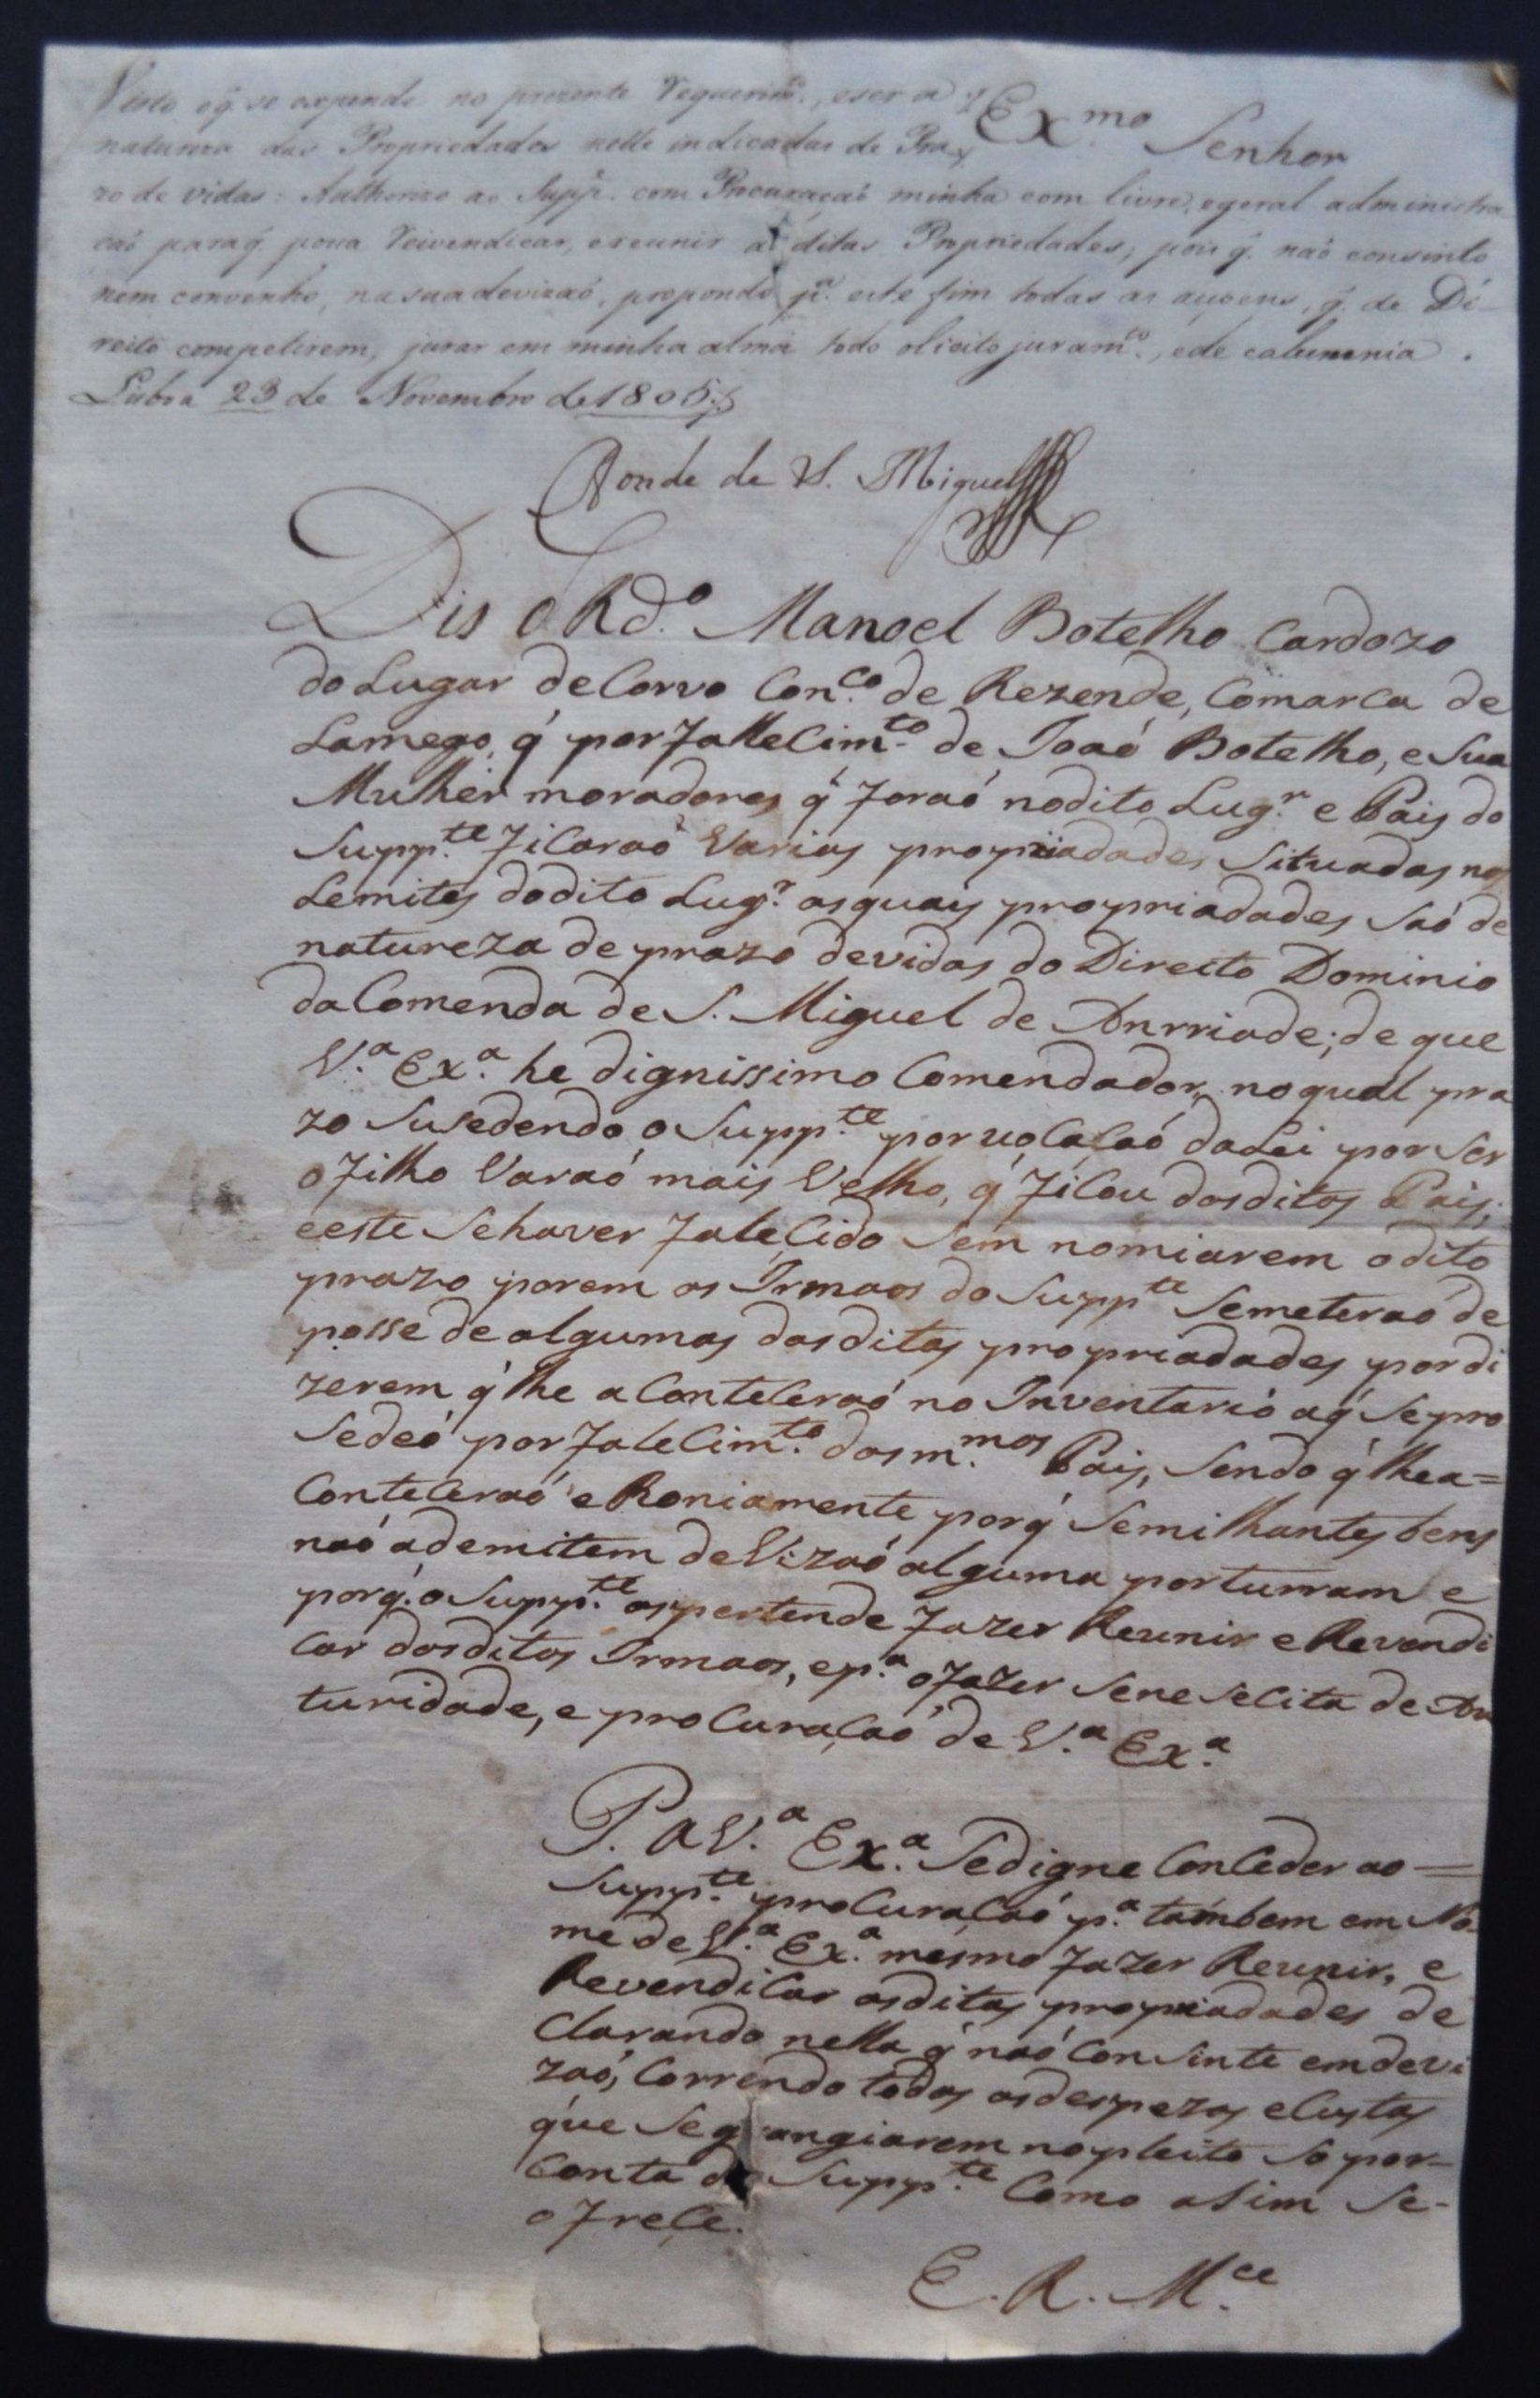 Visto oq̃ se expende no prezente Requerim.to, e ser a
Ex.mo Senhor
natureza das Propriedades nelle indicadas de Pra
zo de vidas: Authorizo ao Supp.e com Procuraçaõ minha com livre, e geral administra
caõ paraq̃ possa Reivendicar, e reunir as ditas Propriedades; pois q̃ naõ consinto
nem convenho, na sua devizaõ, propondo p.a este fim todas as auçoens, q̃ de Di
reito competirem, jurar em minha alma todo olicito juram.to, e de calumnia.
Lisboa 23 de Novembro de 1805
Conde de S. Miguel
Dis o Rd.o Manoel Botelho Cardozo
do Lugar de Corvo Con.co de Rezende, Comarca de
Lamego, q̃ por fallecim.to de Joaõ Botelho, e Sua
Mulher moradores q̃ foraõ nodito Lug.r e Pais do
Supp.te ficaraõ Varias propriadades Situadas nos
Lemites dodito Lug.r asquais propriadades Saõ de
natureza de prazo devidas do Direito Dominio
da Comenda de S. Miguel de Anrriade; de que
V.a Ex.a he dignissimo Comendador, noqual pra
zo Susedendo o Supp.te por vocacaõ daLei por Ser
o filho Varaõ mais Velho, q̃ ficou dosditos Pais,
eeste Sehaver falecido Sem nomiarem odito
prazo porem os Irmaos do Supp.te Semeteraõ de
posse de algumas dasditas propriadades por di
zerem q̃ lhe aConteceraõ no Inventario aq̃ Sepro
Sedeó por falecim.to dos m.mos Pais, Sendo q̃ lhea=
Conteceraõ eRoniamente porq̃ Semilhantes bens
naõ ademitem deVizaõ alguma porturram e
porq̃ o Supp.te aspertende fazer Reunir e Revendi
car dosditos Irmaos, e p.a ofazer Sene Secita de Au
turidade, e procuraçaõ de V.a Ex.a
P. a V.a Ex.a Sedigne Conceder ao =
Supp.te procuracaõ p.a tambem em No
me de V.a Ex.a mesmo fazer Reunir, e
Revendicar asditas propriadades de
Clarando nella q̃ naõ Consinte emdevi
zaõ, Correndo todas asdespezas eCustas
que Seg angiarem nopleito Só por-
Conta do Supp.te Como aSim Se-
ofreçe.
E. R. M.ce